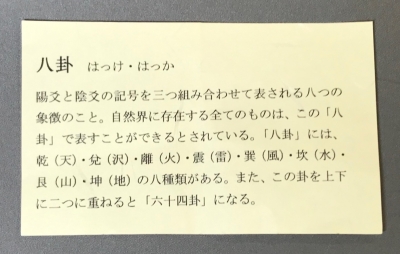 八卦　はっけ・はっか
陽爻と陰爻の記号を三つ組み合わせて表される八つの
象徴のこと。自然界に存在する全てのものは、この「八
卦」で表すことができるとされている。「八卦」には、
乾（天）・兌（沢）・離（火）・震（雷）・巽（風）・坎（水）・
艮（山）・坤（地）の八種類がある。また、この卦を上下
に二つに重ねると「六十四卦」になる。